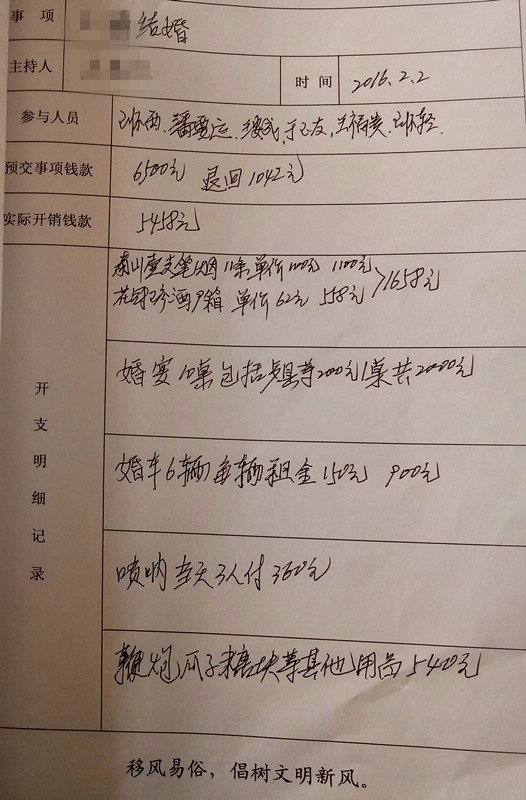 事 项 结婚
主持人 时 间 2016.2.2
参与人员
预交事项钱款 6500元 退回1042元
实际开销钱款 5458元
开支明细记录
泰山壹支笔烟11条单价100元 1100元
酒9箱 单价62元 558元 >1658元
婚宴10桌包括桌具等200元1桌共2000元
婚车6辆每辆租金150元 900元
唢呐 3人付360元
鞭炮瓜子糖块等其他用品540元
移风易俗，倡树文明新风。